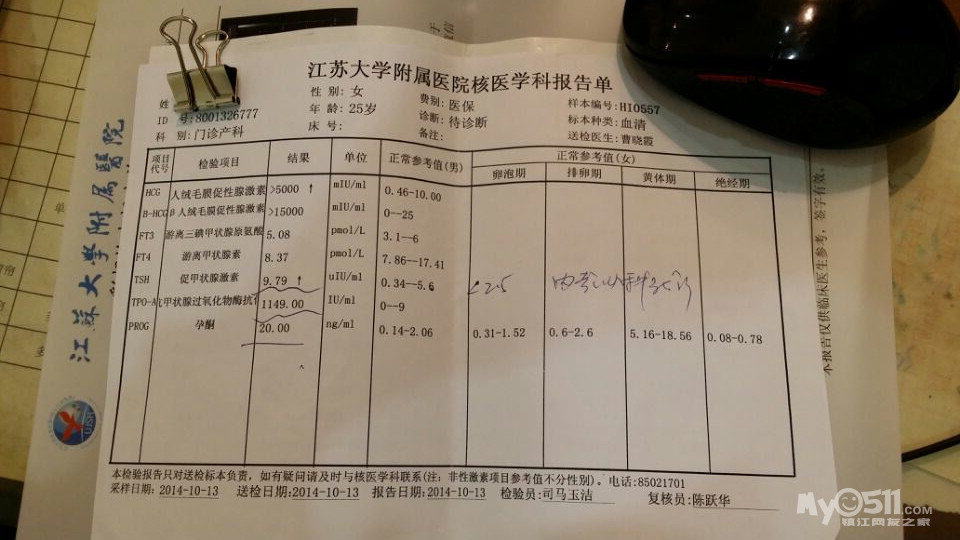 江苏大学附属医院核医学科报告单
姓
性 别: 女
费别: 医保
样本编号: HI0557
ID 号: 8001326777
年 龄: 25岁
诊断: 待诊断
标本种类: 血清
科 别: 门诊产科
床 号:
备注:
送检医生: 曹晓霞
项目代号 检验项目 结果 单位 正常参考值(男) 正常参考值(女)
卵泡期 排卵期 黄体期 绝经期
HCG 人绒毛膜促性腺激素 >5000 ↑ mIU/ml 0.46-10.00
B-HCG β人绒毛膜促性腺激素 >15000 mIU/ml 0--25
FT3 游离三碘甲状腺原氨酸 5.08 pmol/L 3.1--6
FT4 游离甲状腺素 8.37 pmol/L 7.86--17.41
TSH 促甲状腺激素 9.79 ↑ uIU/ml 0.34--5.6 <2.5
TPO-A 抗甲状腺过氧化物酶抗 1149.00 IU/ml 0--9
PROG 孕酮 20.00 ng/ml 0.14-2.06 0.31-1.52 0.6-2.6 5.16-18.56 0.08-0.78
本检验报告只对送检标本负责, 如有疑问请及时与核医学科联系(注: 非性激素项目参考值不分性别)。电话:85021701
采样日期: 2014-10-13 送检日期:2014-10-13 报告日期:2014-10-13 检验员:司马玉洁 复核员:陈跃华
江蘇大學附属醫院
本报告仅供临床医生参考, 签字有效。
My0511.COM
镇江网友之家